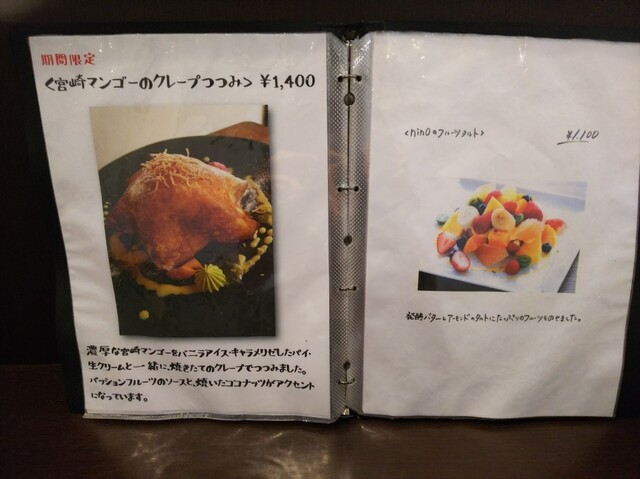 期間限定
<宮崎マンゴーのクレープつつみ> ¥1,400
濃厚な宮崎マンゴーをバニラアイス・キャラメリゼしたパイ・
生クリームと一緒に、焼きたてのクレープでつつみました。
パッションフルーツのソースと、焼いたココナッツがアクセント
になっています。
<ninoのフルーツタルト> ¥1.100
発酵バターとアーモンドのタルトにたっぷりのフルーツをのせました。